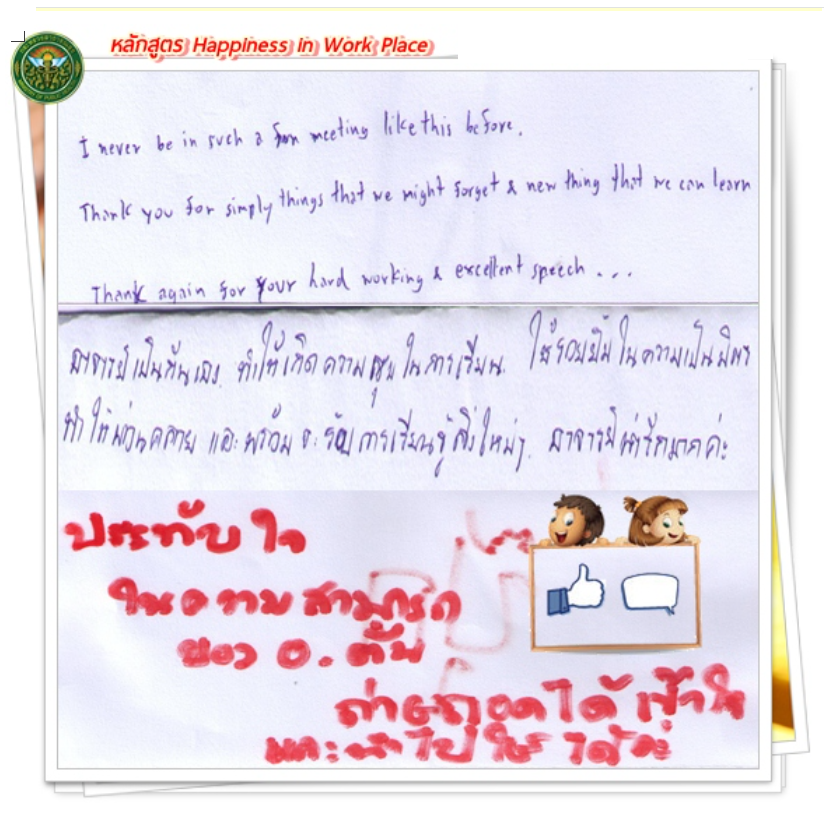 หลักสูตร Happiness in Work Place
I never be in such a fun meeting like this before.
Thank you for simply things that we might forget & new thing that we can learn
Thank again for your hard working & excellent speech ...
อาจารย์เป็นกันเอง ทำให้เกิดความสุขในการเรียน. ให้รอยยิ้มในความเป็นมิตร
ทำให้ผ่อนคลาย และพร้อมจะรับการเรียนรู้สิ่งใหม่ๆ. อาจารย์น่ารักมากค่ะ
ประทับใจ
ในความสามารถ
ของ อ. ต้น
ถ่ายทอดได้เข้าใจ
และนำไปใช้ได้ค่ะ